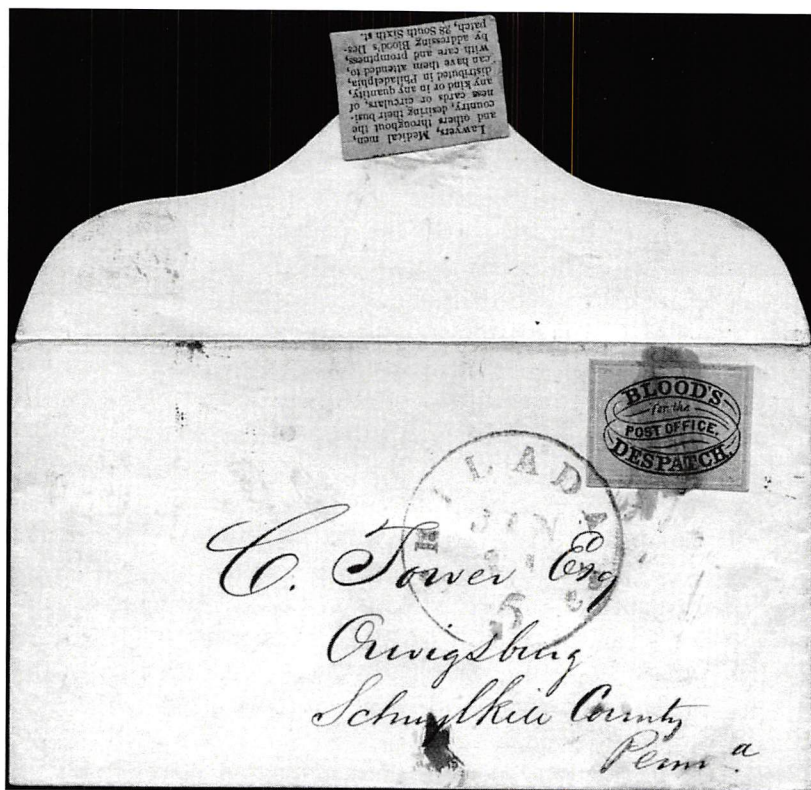 Lawyers, Medical men,
and others throughout the
country, desiring their busi-
ness cards or circulars, of
any kind or in any quantity,
distributed in Philadelphia,
can have them attended to,
with care and promptness,
by addressing Blood's Des-
patch, 28 South Sixth st.
BLOOD'S
for the
POST OFFICE.
DESPATCH.
PHILADA
JUN
5
C. Tower Esq
Orwigsburg
Schuylkill County
Penna